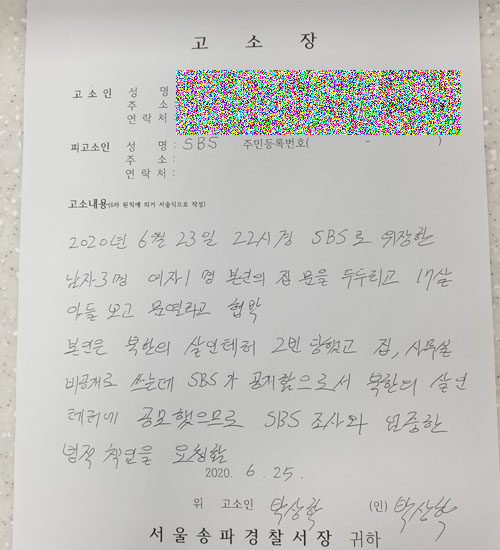 고 소 장
고 소 인 성 명
주 소
연 락 처 :
피고소인 성 명 : SBS 주민등록번호( - )
주 소 :
연 락 처 :
고소내용(6하 원칙에 의거 서술식으로 작성)
2020년 6월 23일 22시경 SBS로 위장한
남자3명 여자1명 본인의 집 문을 두두리고 17살
아들 보고 문열라고 협박
본인은 북한의 살인테러 2번 당했고 집, 사무실
비공개로 쓰는데 SBS가 공개함으로서 북한의 살인
테러에 공모했으므로 SBS 조사와 엄중한
법적 책임을 요청함
2020. 6. 25.
위 고소인 박상학 (인) 박상학
서울송파경찰서장 귀하